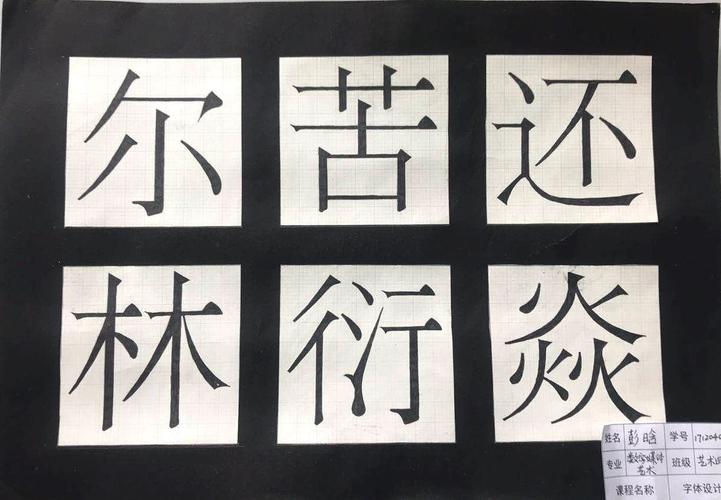 尔 苦 还
林 衍 焱
姓名 彭晗 学号 171204
专业 数字媒体艺术 班级 艺术
课程名称 字体设计